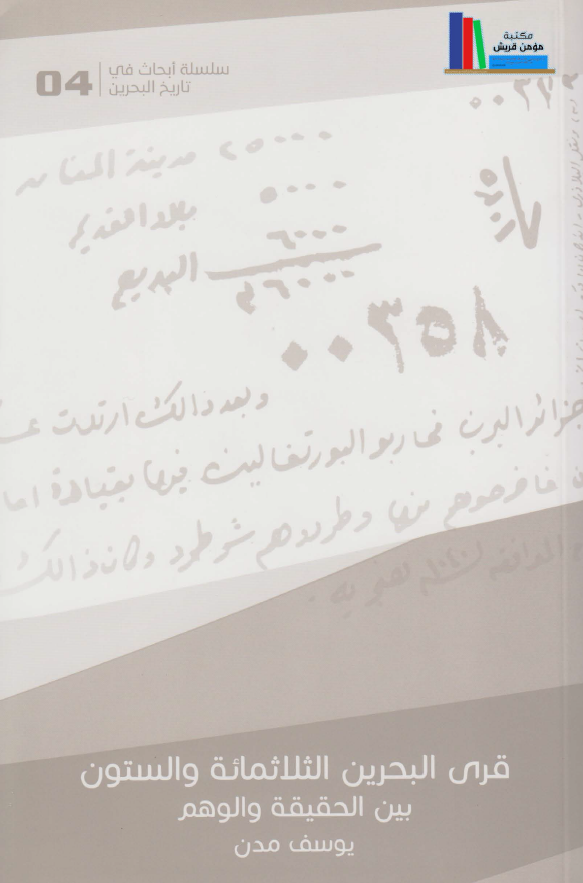 مكتبة
مؤمن قريش
سلسلة أبحاث في
تاريخ البحرين
04
٢٥٠٠٠ مدينة المنامه
٥٠٠٠ بلاد القديم
٦٠٠٠ البديع
٣٦٠٠٠
٨٥٣٠٠
وبعد ذالك ارتدت
جزائر البحرين فحاربو البورتغاليين فيها بقيادة
فاخرجوهم منها وطردوهم شر طرد وكان ذالك
هجريه .
قرى البحرين الثلاثمائة والستون
بين الحقيقة والوهم
يوسف مدن